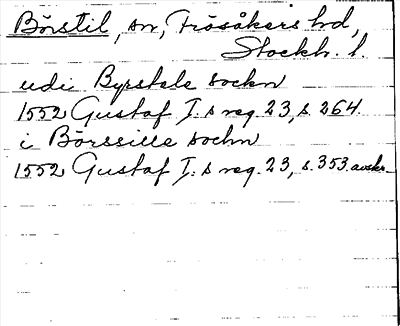 Börstil, sn, Frösåkers hd,
Stockh. l.
udi Byrstele sockn
1552 Gustaf I. s reg. 23, s. 264.
i Börssille sochn
1552 Gustaf I. s reg. 23, s. 353. avskr.